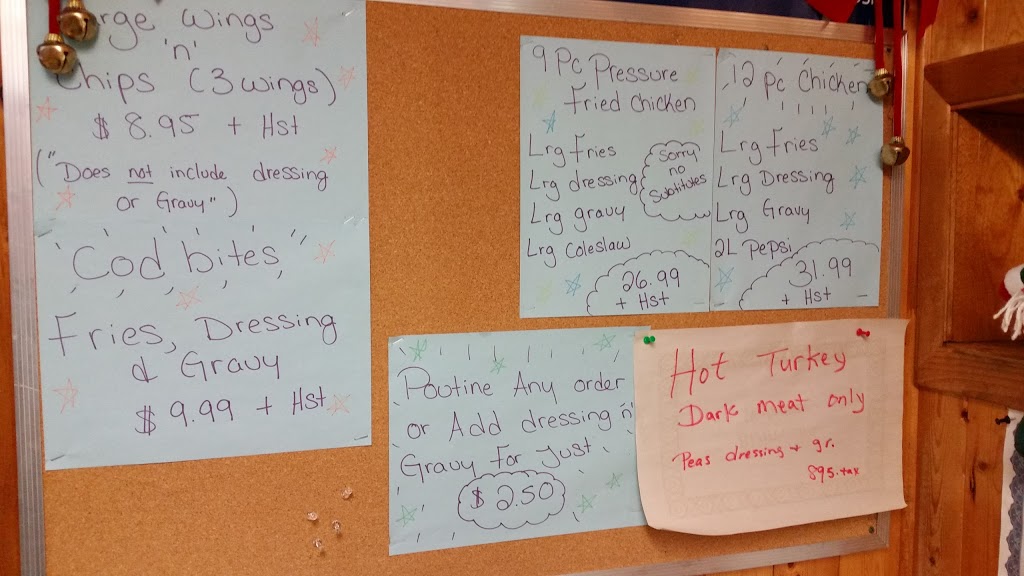 Wings
'n'
Chips (3 wings)
$ 8.95 + Hst
("Does not include dressing
or Gravy")
"Cod bites"
Fries, Dressing
& Gravy
$ 9.99 + Hst
9 Pc Pressure
Fried Chicken
Lrg Fries
Lrg dressing
Lrg gravy
Lrg Coleslaw
Sorry
no
Subtitutes
26.99
+ Hst
12 pc Chicken
Lrg Fries
Lrg Dressing
Lrg Gravy
2L Pepsi
31.99
+ Hst
Poutine Any order
or Add dressing 'n'
Gravy For Just
$ 2.50
Hot Turkey
Dark meat only
Peas dressing + gr.
895 + tax